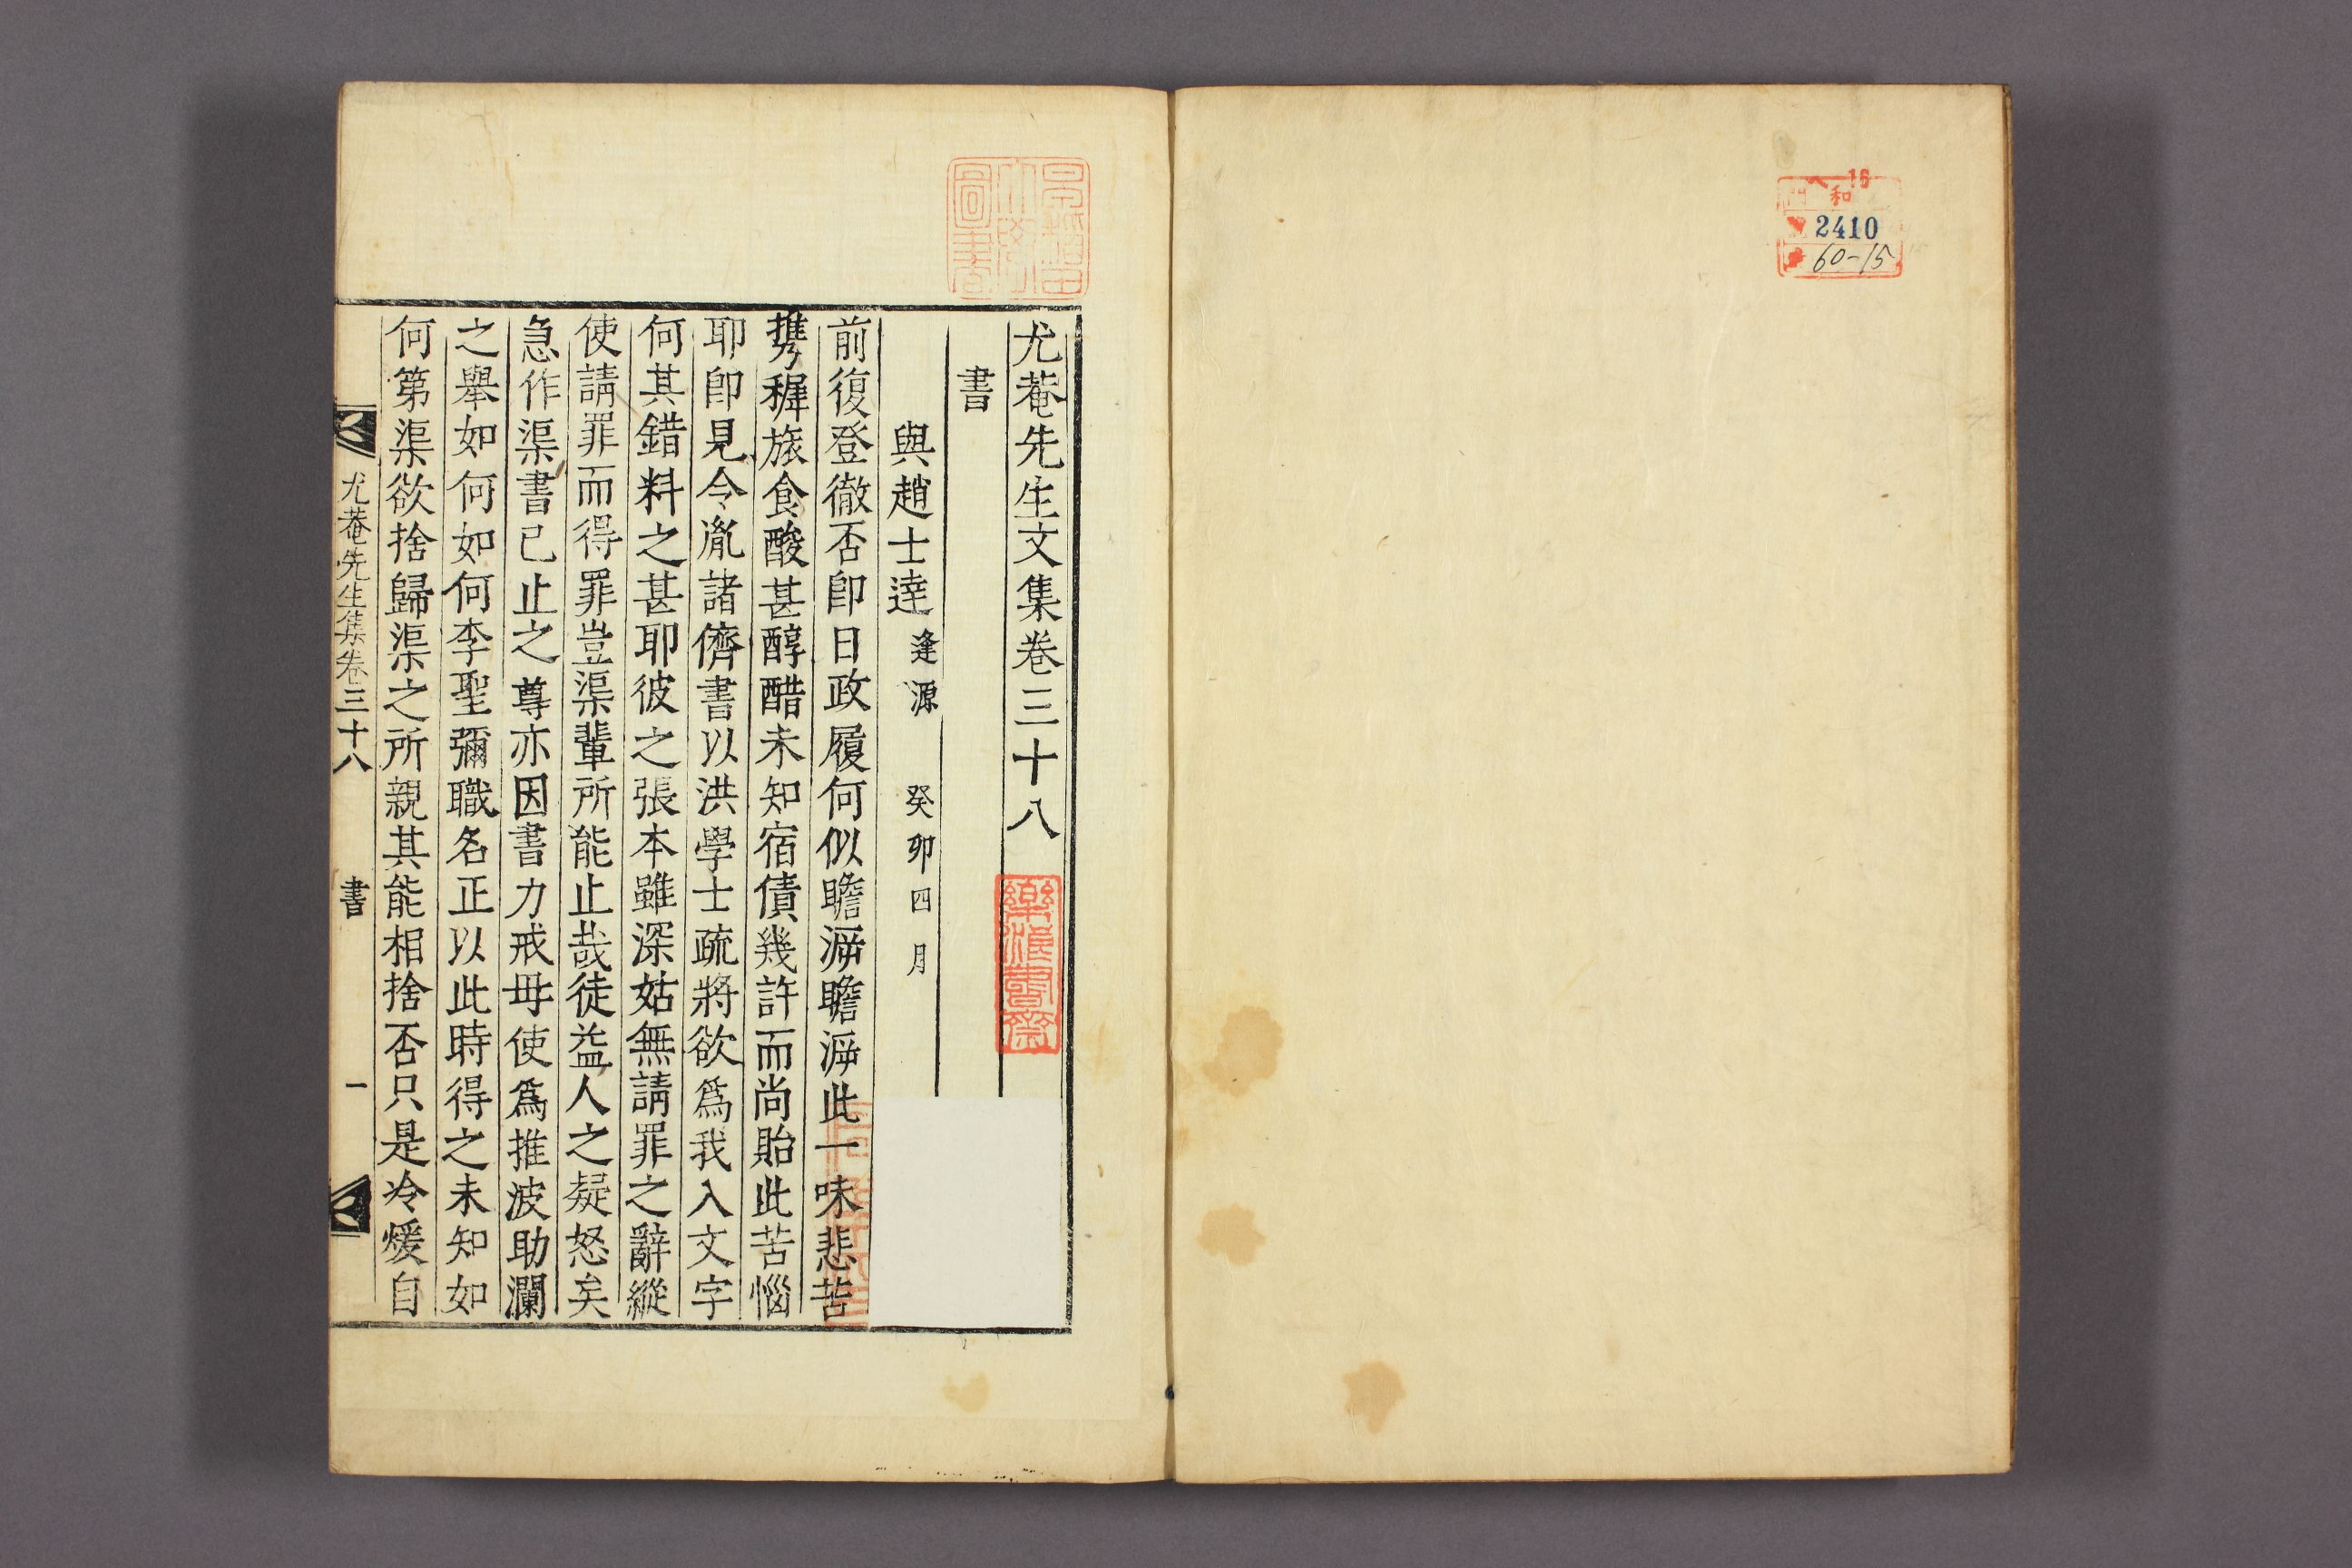 16
和
2410
60-15
早稲田
大學
圖書
尤菴先生文集卷三十八
書
與趙士達 逢源 癸卯四月
前復登徹否卽日政履何似瞻溯瞻溯此一味悲苦
携穉旅食酸甚醇醋未知宿債幾許而尚貽此苦惱
耶卽見令胤諸儕書以洪學士疏將欲爲我入文字
何其錯料之甚耶彼之張本雖深姑無請罪之辭縱
使請罪而得罪豈渠輩所能止哉徒益人之疑怒矣
急作渠書已止之尊亦因書力戒毋使爲推波助瀾
之擧如何如何李聖彌職名正以此時得之未知如
何第渠欲捨歸渠之所親其能相捨否只是冷煖自
尤菴先生集卷三十八 書 一